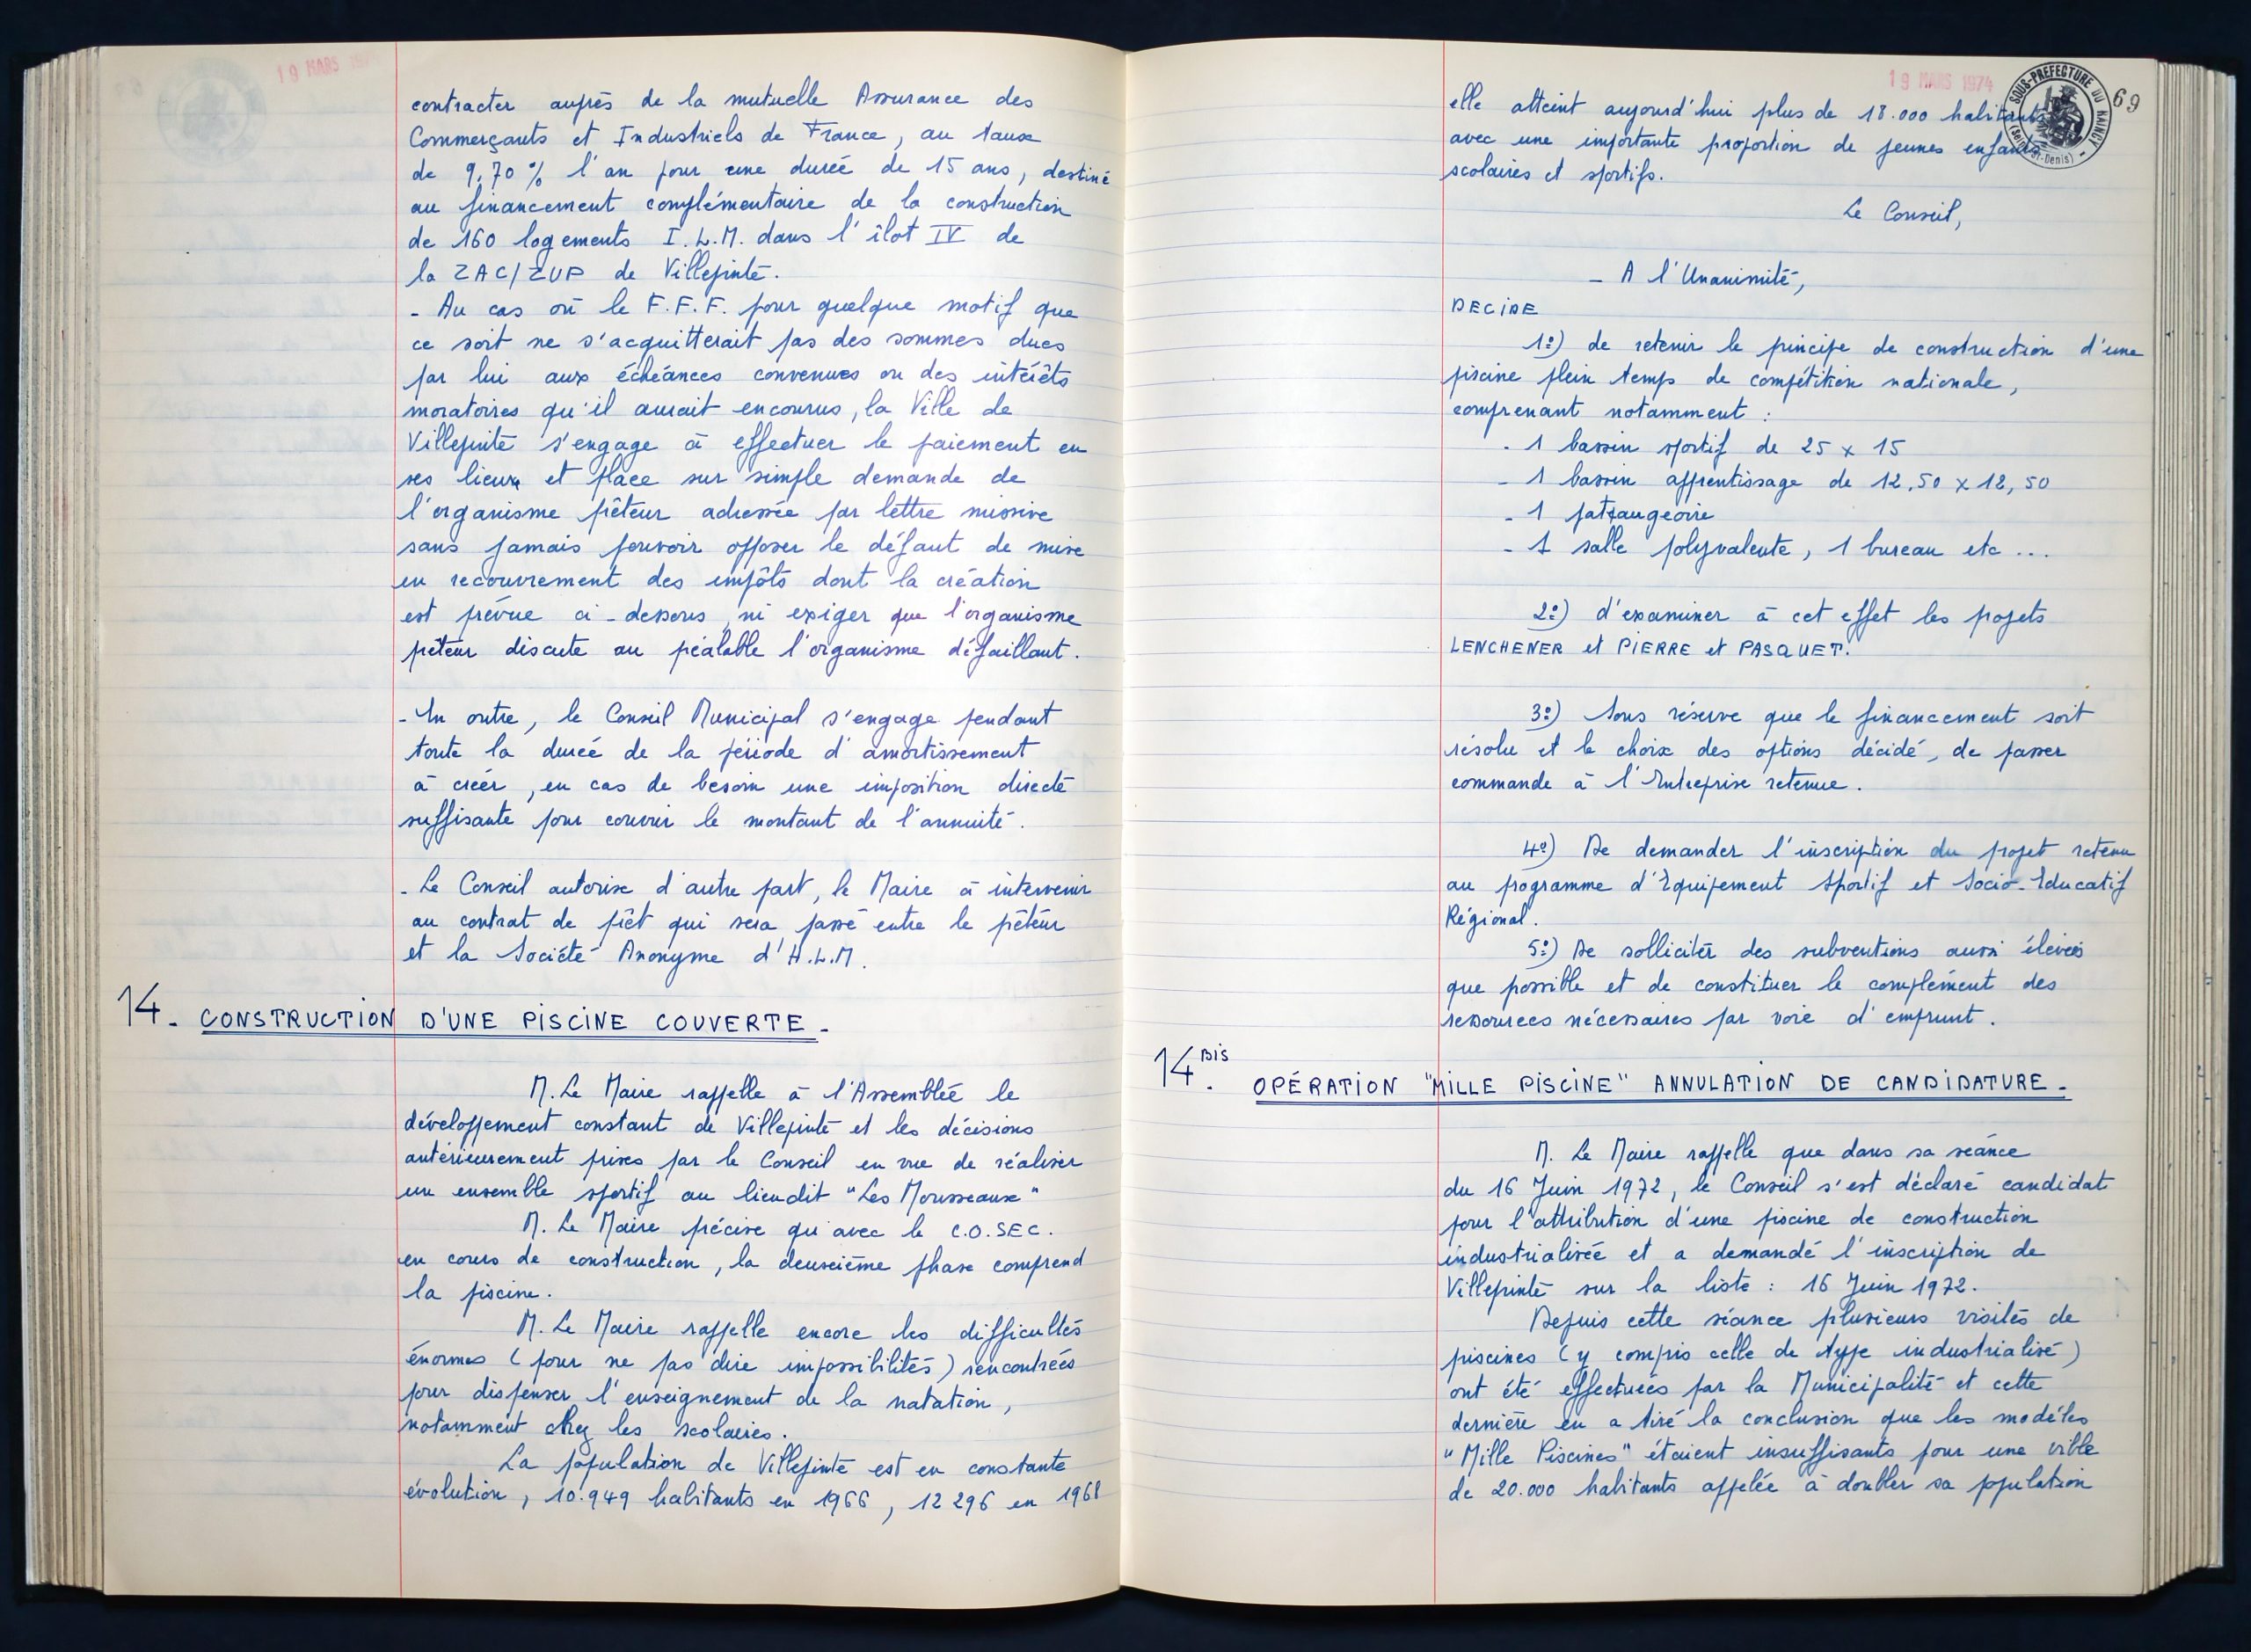 19 MARS 197
contracter auprès de la mutuelle Assurance des
Commerçants et Industriels de France, au taux
de 9,70 % l'an pour une durée de 15 ans, destiné
au financement complémentaire de la construction
de 160 logements I.L.M. dans l'îlot IV de
la ZAC/ZUP de Villepinte.
- Au cas où le F.F.F. pour quelque motif que
ce soit ne s'acquitterait pas des sommes dues
par lui aux échéances convenues ou des intérêts
moratoires qu'il aurait encourus, la Ville de
Villepinte s'engage à effectuer le paiement en
ses lieux et place sur simple demande de
l'organisme prêteur adressée par lettre missive
sans jamais pouvoir opposer le défaut de mise
en recouvrement des impôts dont la création
est prévue ci-dessous, ni exiger que l'organisme
prêteur discute au préalable l'organisme défaillant.
- En outre, le Conseil Municipal s'engage pendant
toute la durée de la période d'amortissement
à créer, en cas de besoin une imposition directe
suffisante pour couvrir le montant de l'annuité.
- Le Conseil autorise d'autre part, le Maire à intervenir
au contrat de prêt qui sera passé entre le prêteur
et la Société Anonyme d'H.L.M.
14. CONSTRUCTION D'UNE PISCINE COUVERTE.
M. Le Maire rappelle à l'Assemblée le
développement constant de Villepinte et les décisions
antérieurement prises par le Conseil en vue de réaliser
un ensemble sportif au lieudit "Les Mousseaux"
M. Le Maire précise qu'avec le C.O.SEC.
en cours de construction, la deuxième phase comprend
la piscine.
M. Le Maire rappelle encore les difficultés
énormes (pour ne pas dire impossibilités) rencontrées
pour dispenser l'enseignement de la natation,
notamment chez les scolaires.
La population de Villepinte est en constante
évolution, 10.949 habitants en 1966, 12 296 en 1968
19 MARS 1974
SOUS-PREFECTURE DU RAINCY
69
elle atteint aujourd'hui plus de 18.000 habitants
avec une importante proportion de jeunes enfants
scolaires et sportifs.
Le Conseil,
- A l'Unanimité,
DECIDE
1º) de retenir le principe de construction d'une
piscine plein temps de compétition nationale,
comprenant notamment :
- 1 bassin sportif de 25 x 15
- 1 bassin apprentissage de 12,50 x 12,50
- 1 pataugeoire
- 1 salle polyvalente, 1 bureau etc ...
2º) d'examiner à cet effet les projets
LENCHENER et PIERRE et PASQUET.
3º) Sous réserve que le financement soit
résolu et le choix des options décidé, de passer
commande à l'Entreprise retenue.
4º) De demander l'inscription du projet retenu
au programme d'Equipement Sportif et Socio-Educatif
Régional.
5º) De solliciter des subventions aussi élevées
que possible et de constituer le complément des
ressources nécessaires par voie d'emprunt.
14 BIS. OPÉRATION "MILLE PISCINE" ANNULATION DE CANDIDATURE.
M. Le Maire rappelle que dans sa séance
du 16 Juin 1972, le Conseil s'est déclaré candidat
pour l'attribution d'une piscine de construction
industrialisée et a demandé l'inscription de
Villepinte sur la liste : 16 Juin 1972.
Depuis cette séance plusieurs visites de
piscines (y compris celle de type industrialisé)
ont été effectuées par la Municipalité et cette
dernière en a tiré la conclusion que les modèles
"Mille Piscines" étaient insuffisants pour une ville
de 20.000 habitants appelée à doubler sa population